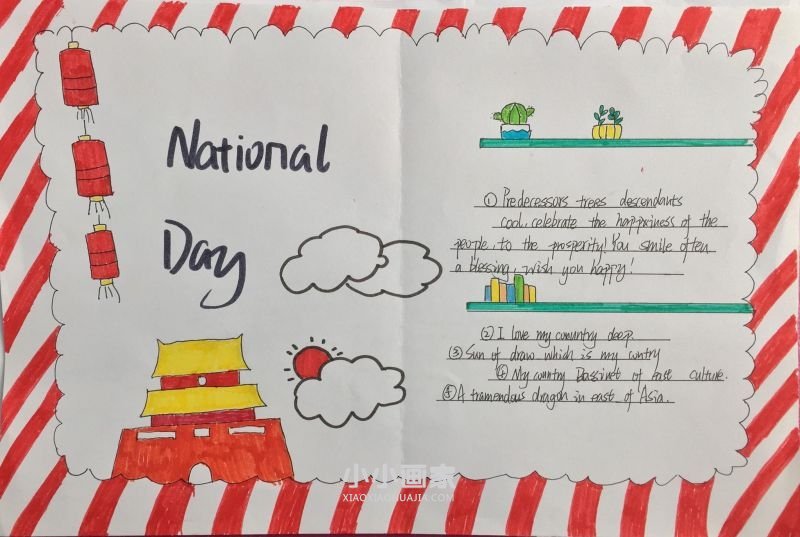 National
Day
① Predecessors trees descendants
cool, celebrate the happiness of the
people, to the prosperity! You smile often
a blessing, wish you happy!
② I love my comuntry deep.
③ Sun of draw which is my cuntry
My country Bassinet of East culture.
④ A tramendous dragon in east of Asia.
小小画家
XIAOXIAOHUAJIA.COM